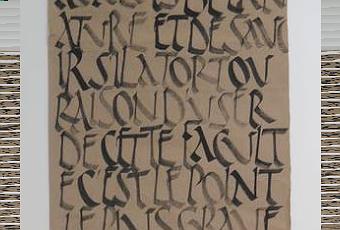 ATURE ET DE SAV
IR SIL A TORT OU
RAISON D'USER
DE CETTE FACULT
E C'EST LE POINT
LE PLUS GRAVE